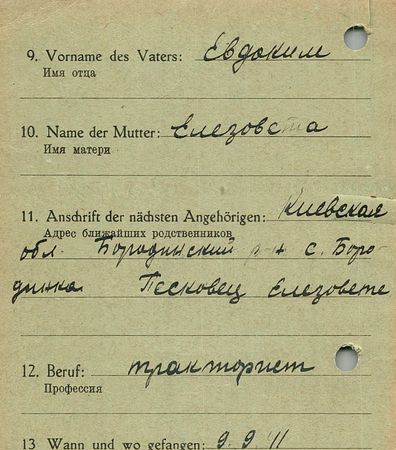 9. Vorname des Vaters: Евдоким
Имя отца
10. Name der Mutter: Елезовета
Имя матери
11. Anschrift der nächsten Angehörigen: Киевская
Адрес ближайших родственников
обл. Бородинский р-н с. Боро-
динка Песковец Елезовете
12. Beruf: тракторист
Профессия
13 Wann und wo gefangen: 9.9.41